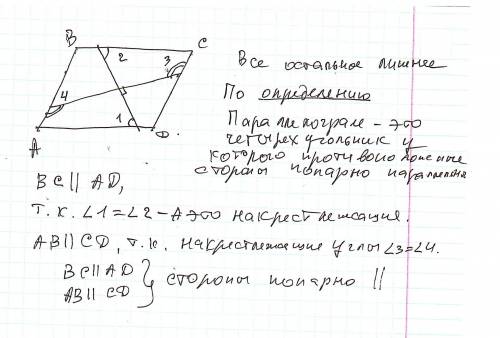 B
C
2
3
4
1
A
D
Все остальное лишнее
По определению
Параллелограм - это
четырехугольник у
которого противоположные
стороны попарно параллельны
BC || AD,
т.к. ∠1=∠2 - А это накрестлежащие.
AB || CD, т.к. накрестлежащие углы ∠3=∠4.
BC || AD
AB || CD } стороны попарно ||